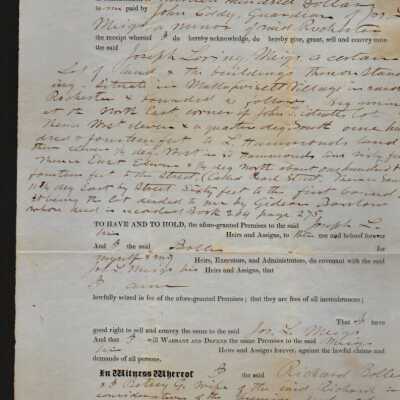 hundred Dollars
to me paid by
John Eddy, Guardian of Jos. L.
Meigs a minor
the receipt whereof I do hereby acknowledge, do hereby give, grant, sell and convey unto
the said
Joseph Loring Meigs, a certain
Lot of land & the buildings thereon stand
ing, Situate in Mattapoisett Village in said
Rochester & bounded as follows
at the North East corner of John lot
Thence West eleven & a quarter deg. South one hun
dred & fourteen feet to L Hammonds land
then
Thence East Eleven & ¼ deg North about one hundred &
fourteen feet to the Street (Called Pearl Street, thence South
11¼ deg East by Street Sixty feet to the first corner
being the Lot deeded to me by Gideon Barstow
whose deed is recorded Book 204 page 275
TO HAVE AND TO HOLD, the afore-granted Premises to the said Joseph L.
his Heirs and Assigns, to their use and behoof forever
And I the said Bolles for
myself & my Heirs, Executors, and Administrators, do covenant with the said
Jos L Meigs his Heirs and Assigns, that
I am
lawfully seized in fee of the afore-granted Premises; that they are free of all incumbrances;
That I have
good right to sell and convey the same to the said Jos. L. Meigs
And that I will WARRANT AND DEFEND the same Premises to the said Meigs
his Heirs and Assigns forever, against the lawful claims and
demands of all persons.
In Witness Whereof I the said Richard Bolles
& Betsey G. Wife of the said Richard in
consideration of the